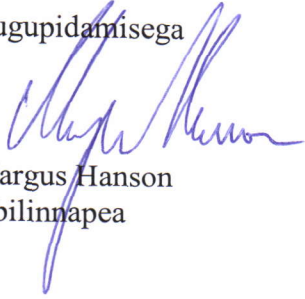 ugupidamisega
argus Hanson
bilinnapea